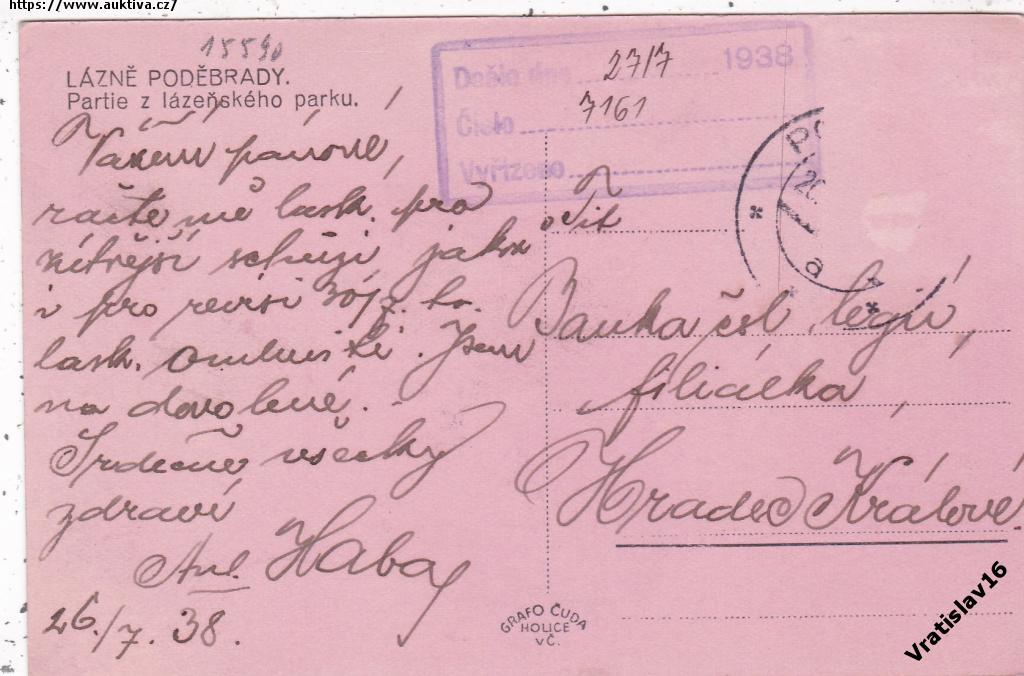 https://www.auktiva.cz7
15590
LÁZNĚ PODĚBRADY.
Partie z lázeňského parku.
Došlo dne 27/7 1938
Číslo 7161
Vyřízeno
Vážení pánové,
račte mě lask. pro
zítřejší schůzi jakož
i pro revisi 30/7. t.r.
lask. omluviti. Jsem
na dovolené.
Srdečně všecky
zdraví
Ant. Haba
26./7. 38.
Tit
Banka čsl. legií,
filiálka,
Hradec Králové
a
GRAFO ČUDA
HOLICE
v Č.
Vratislav16